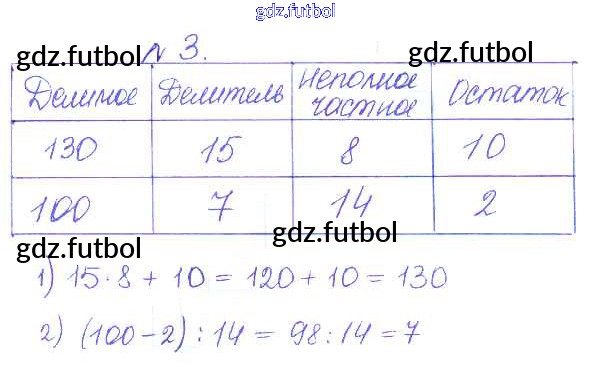 gdz.futbol
N 3.
gdz.futbol gdz.futbol
Делимое Делитель Неполное частное Остаток
130 15 8 10
100 7 14 2
gdz.futbol gdz.futbol
1) 15·8 + 10 = 120 + 10 = 130
2) (100-2) : 14 = 98 : 14 = 7
gdz.futbol gdz.futbol